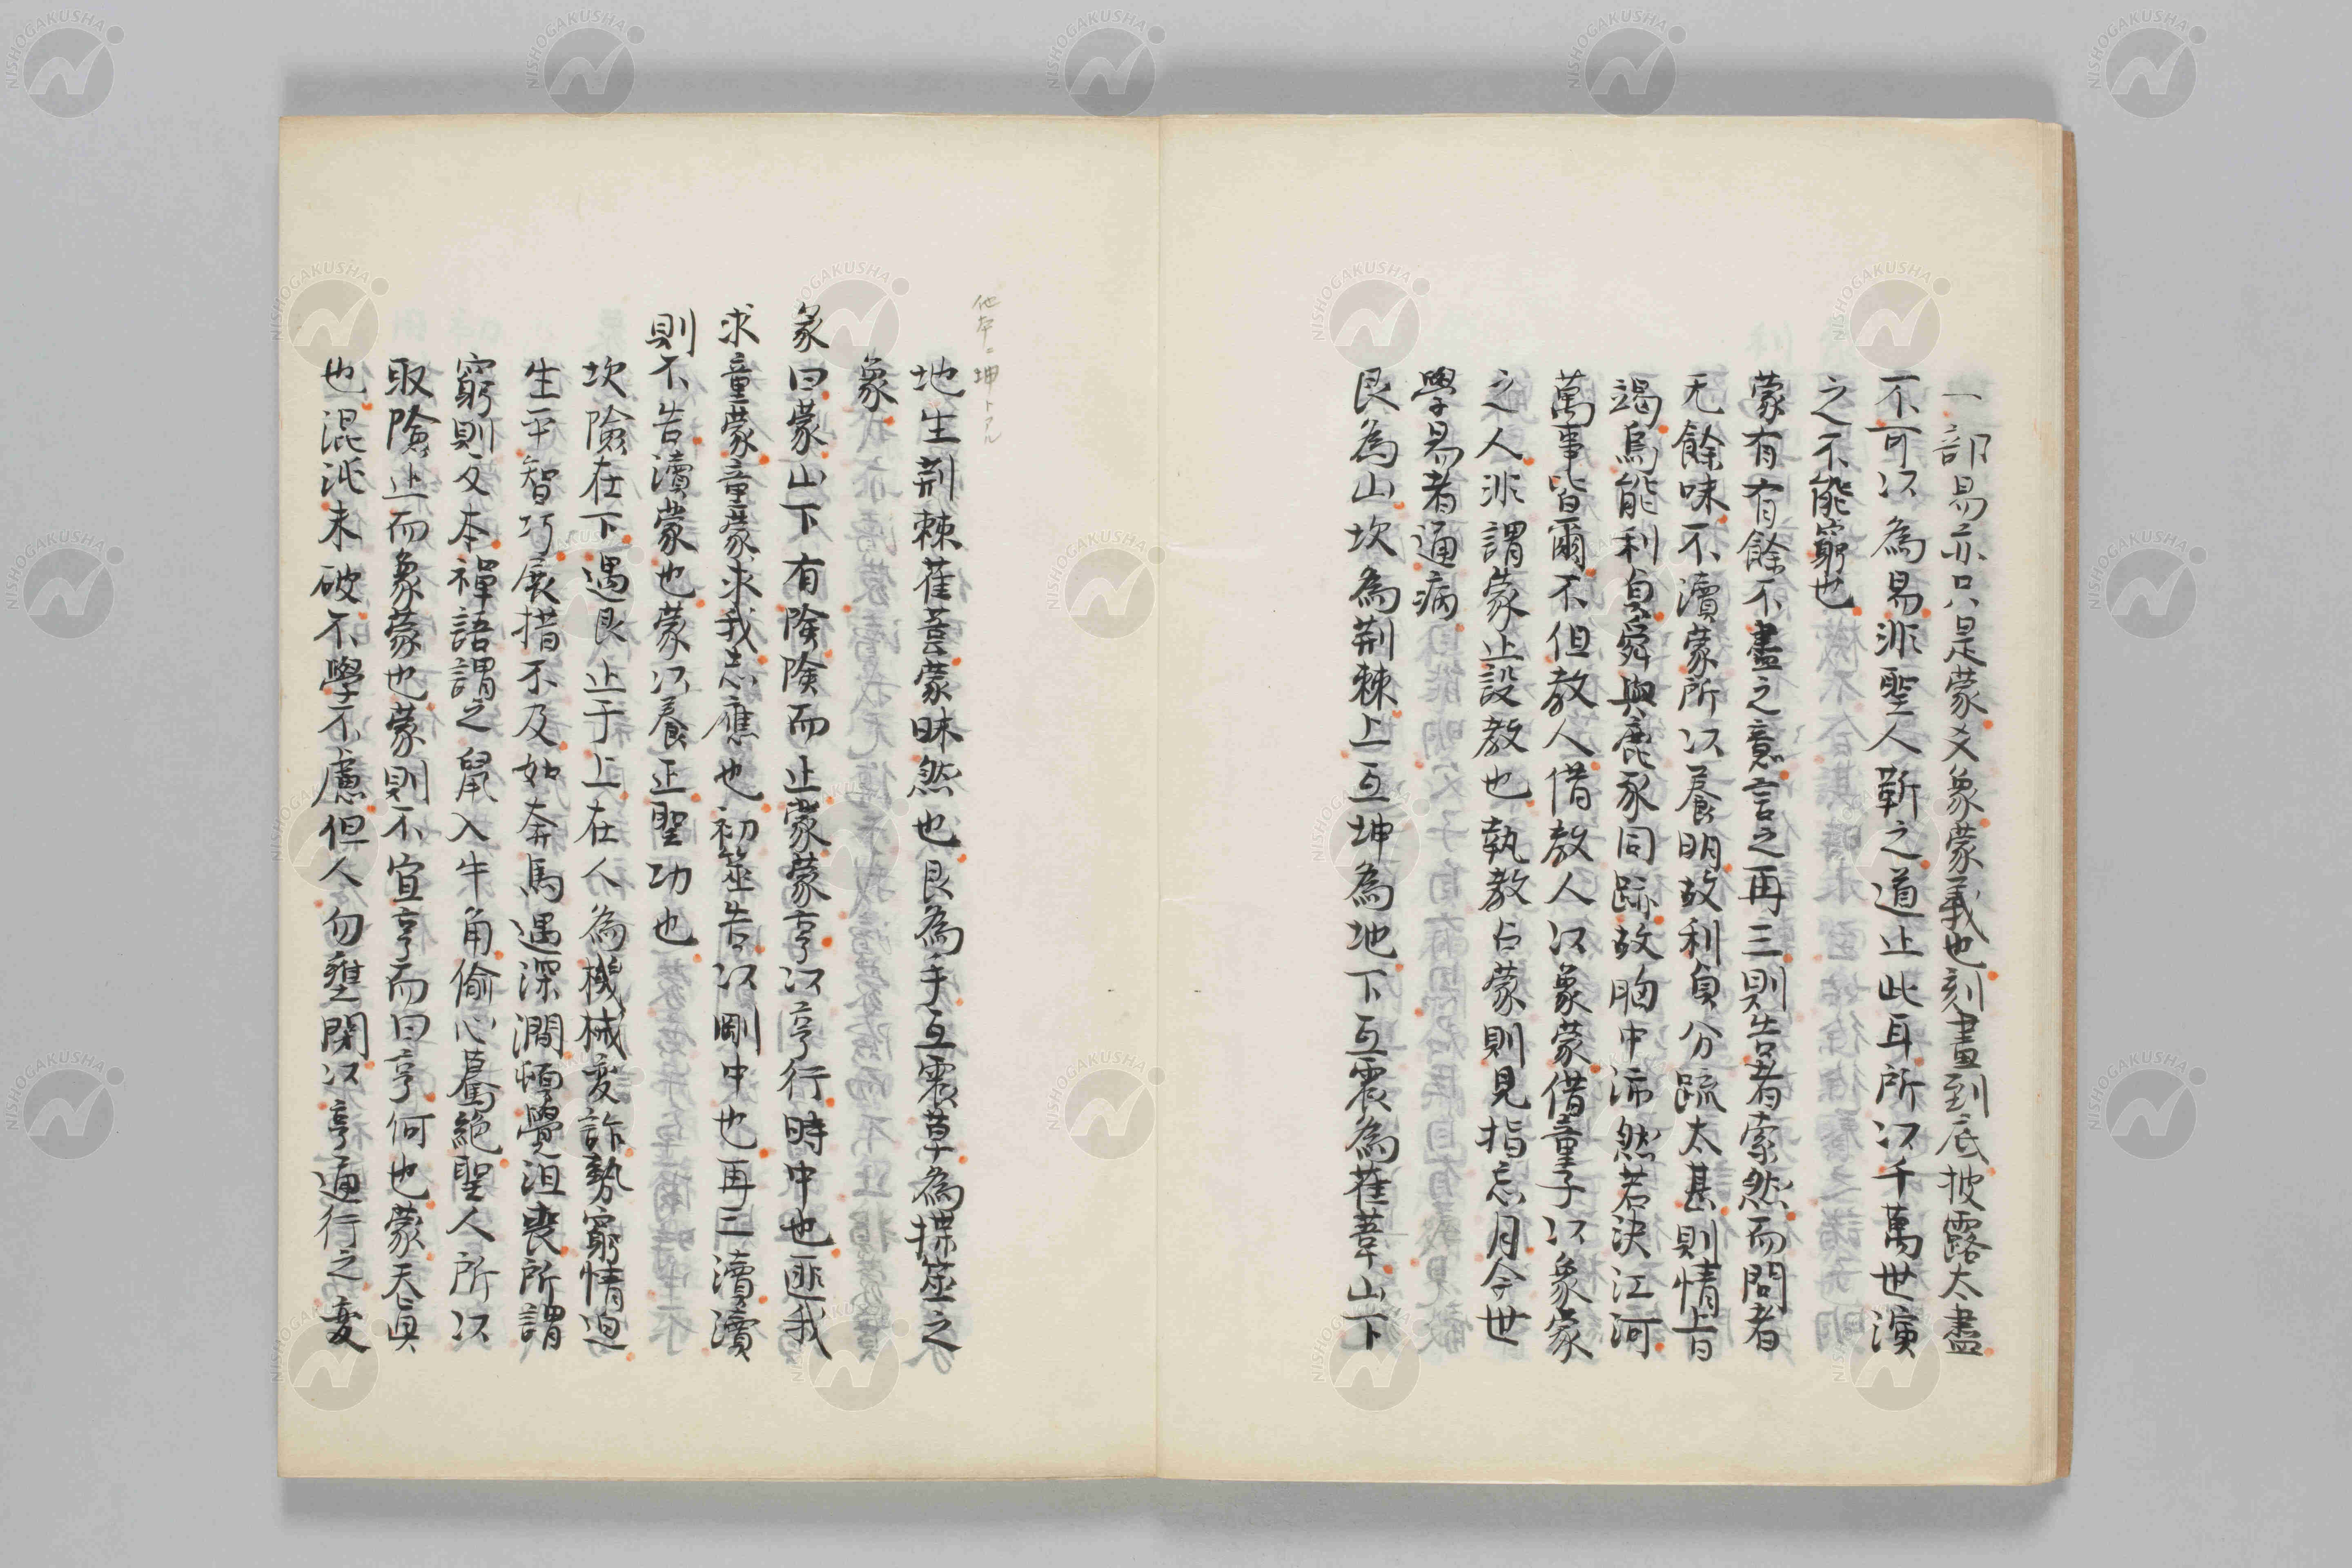 一部易亦只是蒙爻象蒙義也刻畫到底披露太盡
不可以為易非聖人靳之道止此耳所以千萬世演
之不能窮也
蒙有有餘不盡之意言之再三則告者索然而問者
无餘味不瀆蒙所以養明故利貞分疏太甚則情
竭烏能利貞舜與鹿豕同跡故胸中沛然若決江河
萬事皆爾不但教人借教人以象蒙借童子以象蒙
之人非謂蒙止設教也執教占蒙則見指忘月今世
學易者通病
艮為山坎為荊棘上互坤為地下互震為萑葦山下
他本ニ坤トアル
地生荊棘萑葦蒙昧然也艮為手互震草為揲筮之
象
彖曰蒙山下有險險而止蒙蒙亨以亨行時中也匪我
求童蒙童蒙求我志應也初筮告以剛中也再三瀆瀆
則不告瀆蒙也蒙以養正聖功也
坎險在下遇艮止于上在人為機械変詐勢窮情迫
生平智巧展措不及如奔馬遇深澗頓覺沮喪所謂
窮則反本禪語謂之鼠入牛角偷心驀絕聖人所以
取險止而象蒙也蒙則不宜亨而曰亨何也蒙天真
也混沌未破不學不慮但人勿壅閉以亨通行之変
NISHOGAKUSHA